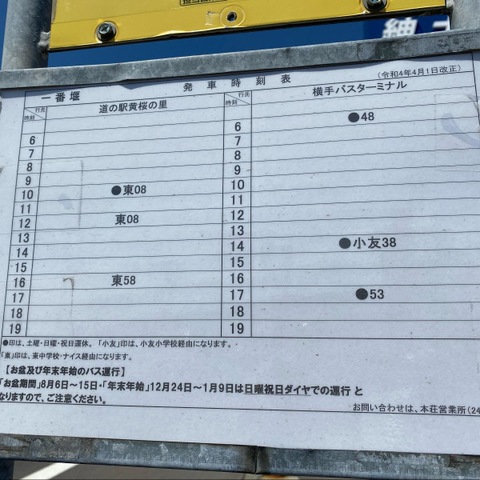 発車時刻表
(令和4年4月1日改正)
一番堰
行先
時刻
道の駅黄桜の里
行先
時刻
横手バスターミナル
6
6 ●48
7
7
8
8
9
9
10 ●東08
10
11
11
12 東08
12
13
13
14
14 ●小友38
15
15
16 東58
16
17
17 ●53
18
18
19
19
●印は、土曜・日曜・祝日運休。「小友」印は、小友小学校経由になります。
「東」印は、東中学校・ナイス経由になります。
【お盆及び年末年始のバス運行】
「お盆期間」8月6日～15日・「年末年始」12月24日～1月9日は日曜祝日ダイヤでの運行 と
なりますので、ご注意ください。
お問い合わせは、本荘営業所(24